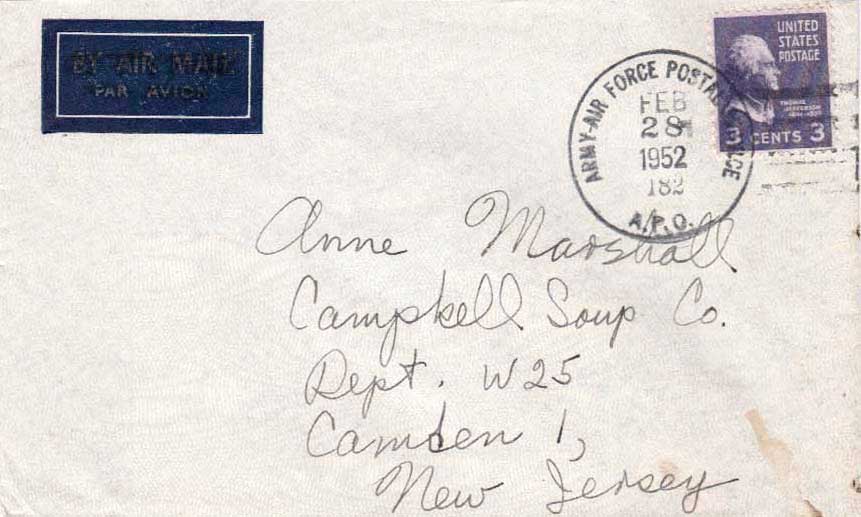 BY AIR MAIL
PAR AVION
UNITED
STATES
POSTAGE
THOMAS
JEFFERSON
3 CENTS 3
ARMY-AIR FORCE POSTAL SERVICE
FEB
28
1952
182
A.P.O.
Anne Marshall
Campbell Soup Co.
Dept. W25
Camden 1,
New Jersey